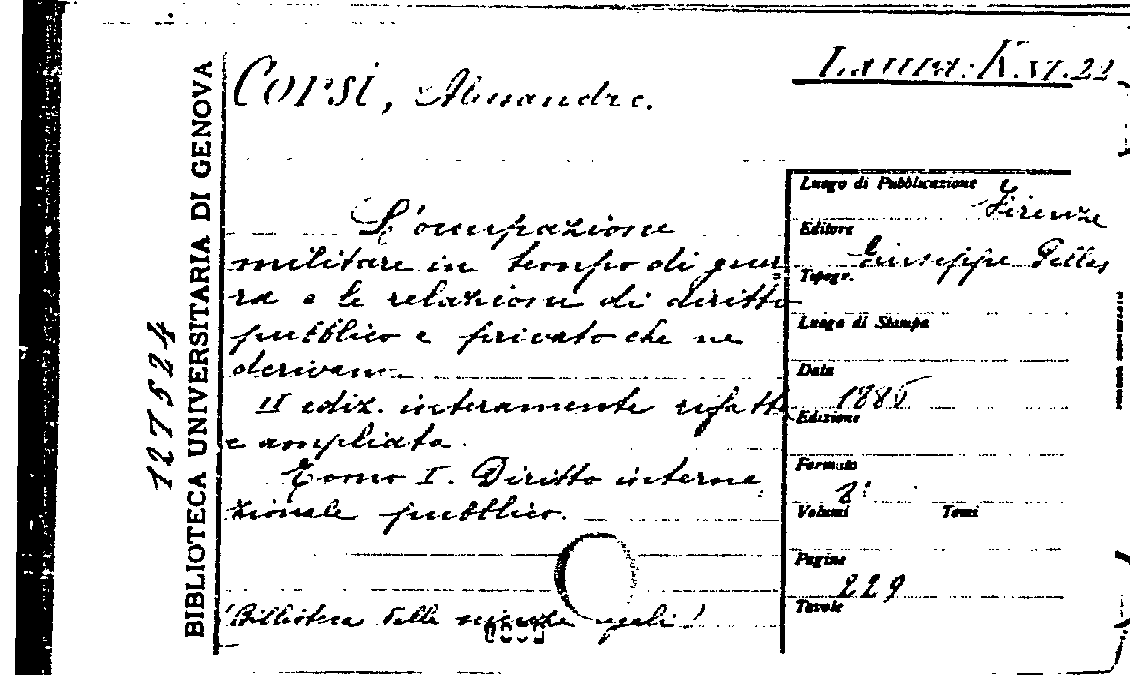 Laura. K.VI.22
CORSI, Alessandro.
BIBLIOTECA UNIVERSITARIA DI GENOVA
127524
L'occupazione
militare in tempo di guer=
ra e le relazioni di diritto
pubblico e privato che ne
derivano
II ediz. interamente rifatta
e ampliata.
Tomo I. Diritto interna
zionale pubblico.
(Biblioteca delle scienze legali)
Luogo di Pubblicazione
Firenze
Editore
Giuseppe Pellas
Topogr.
Luogo di Stampa
Data
1886
Edizione
Formato
8°
Volumi Tomi
Pagine
229
Tavole